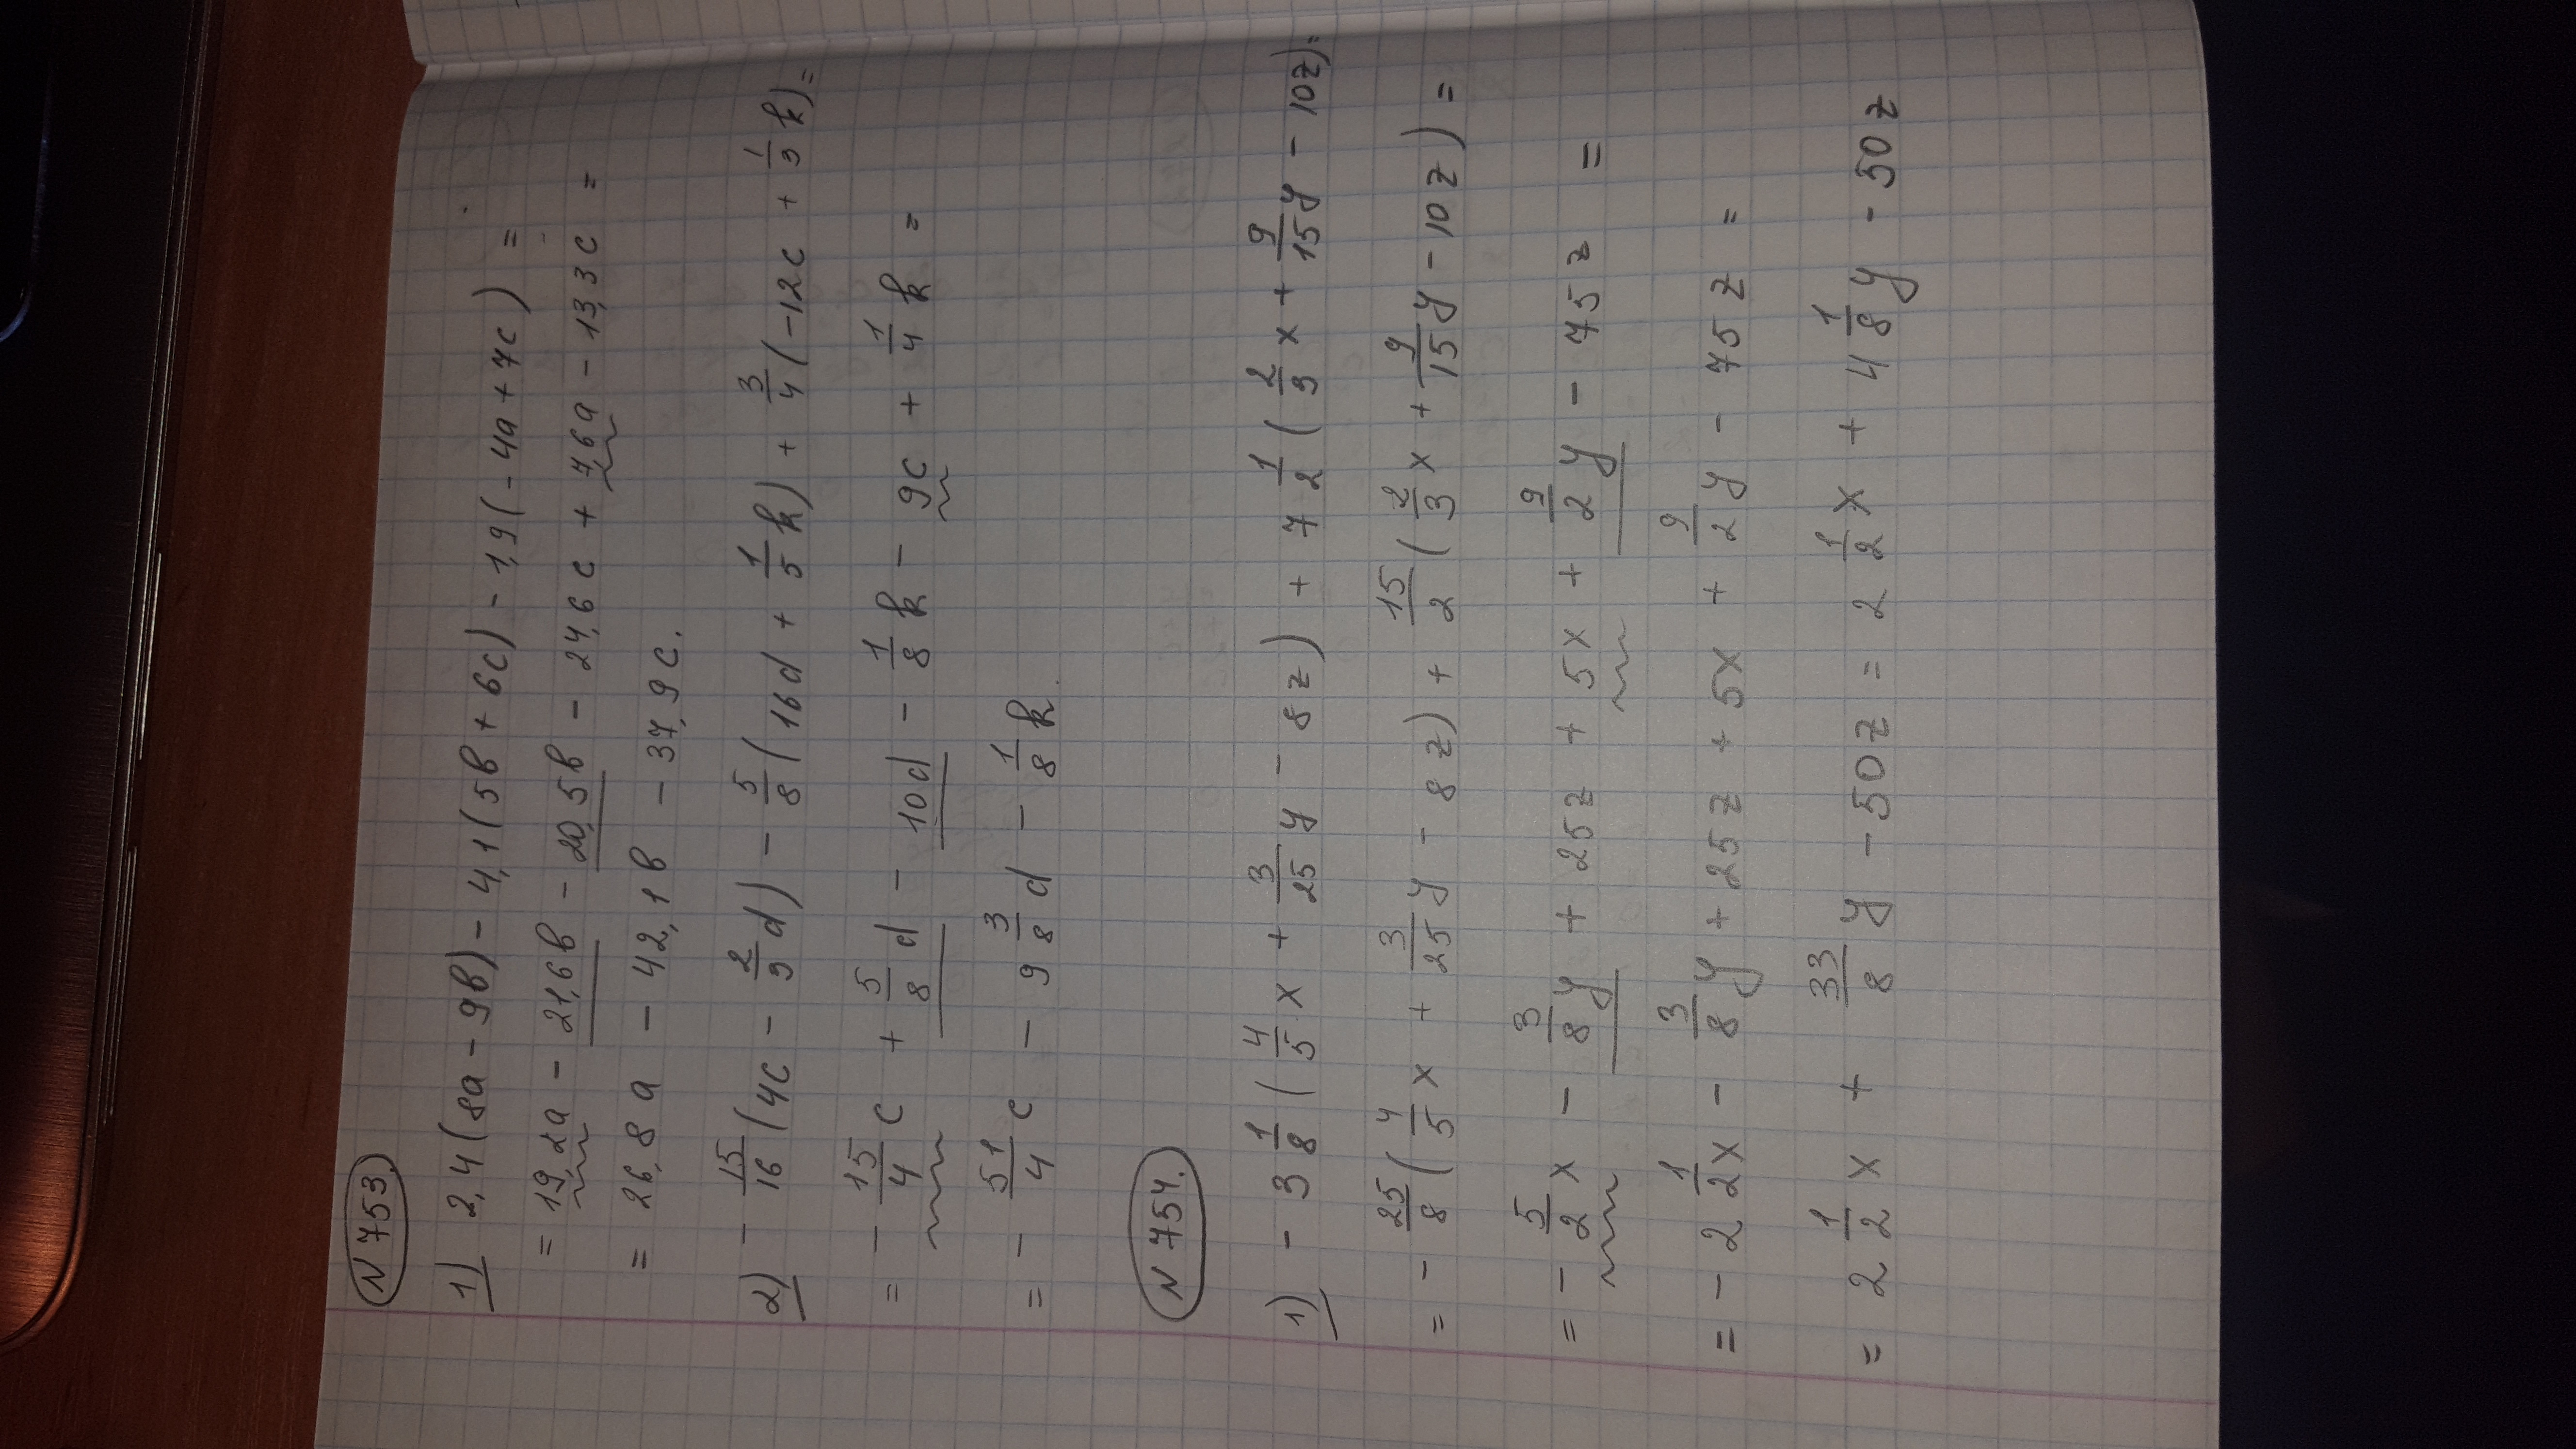 N 753.
1) 2,4(8a - 9b) - 4,1(5b + 6c) - 1,9(-4a + 7c) =
= 19,2a - 21,6b - 20,5b - 24,6c + 7,6a - 13,3c =
= 26,8a - 42,1b - 37,9c.
2) - 15/16 (4c - 2/3 d) - 5/8 (16d + 1/5 k) + 3/4 (-12c + 1/3 k) =
= - 15/4 c + 5/8 d - 10d - 1/8 k - 9c + 1/4 k =
= - 51/4 c - 9 3/8 d - 1/8 k.
N 754.
1) - 3 1/8 (4/5 x + 3/25 y - 8z) + 7 1/2 (2/3 x + 9/15 y - 10z) =
= - 25/8 (4/5 x + 3/25 y - 8z) + 15/2 (2/3 x + 9/15 y - 10z) =
= - 5/2 x - 3/8 y + 25z + 5x + 9/2 y - 75z =
= - 2 1/2 x - 3/8 y + 25z + 5x + 9/2 y - 75z =
= 2 1/2 x + 33/8 y - 50z = 2 1/2 x + 4 1/8 y - 50z